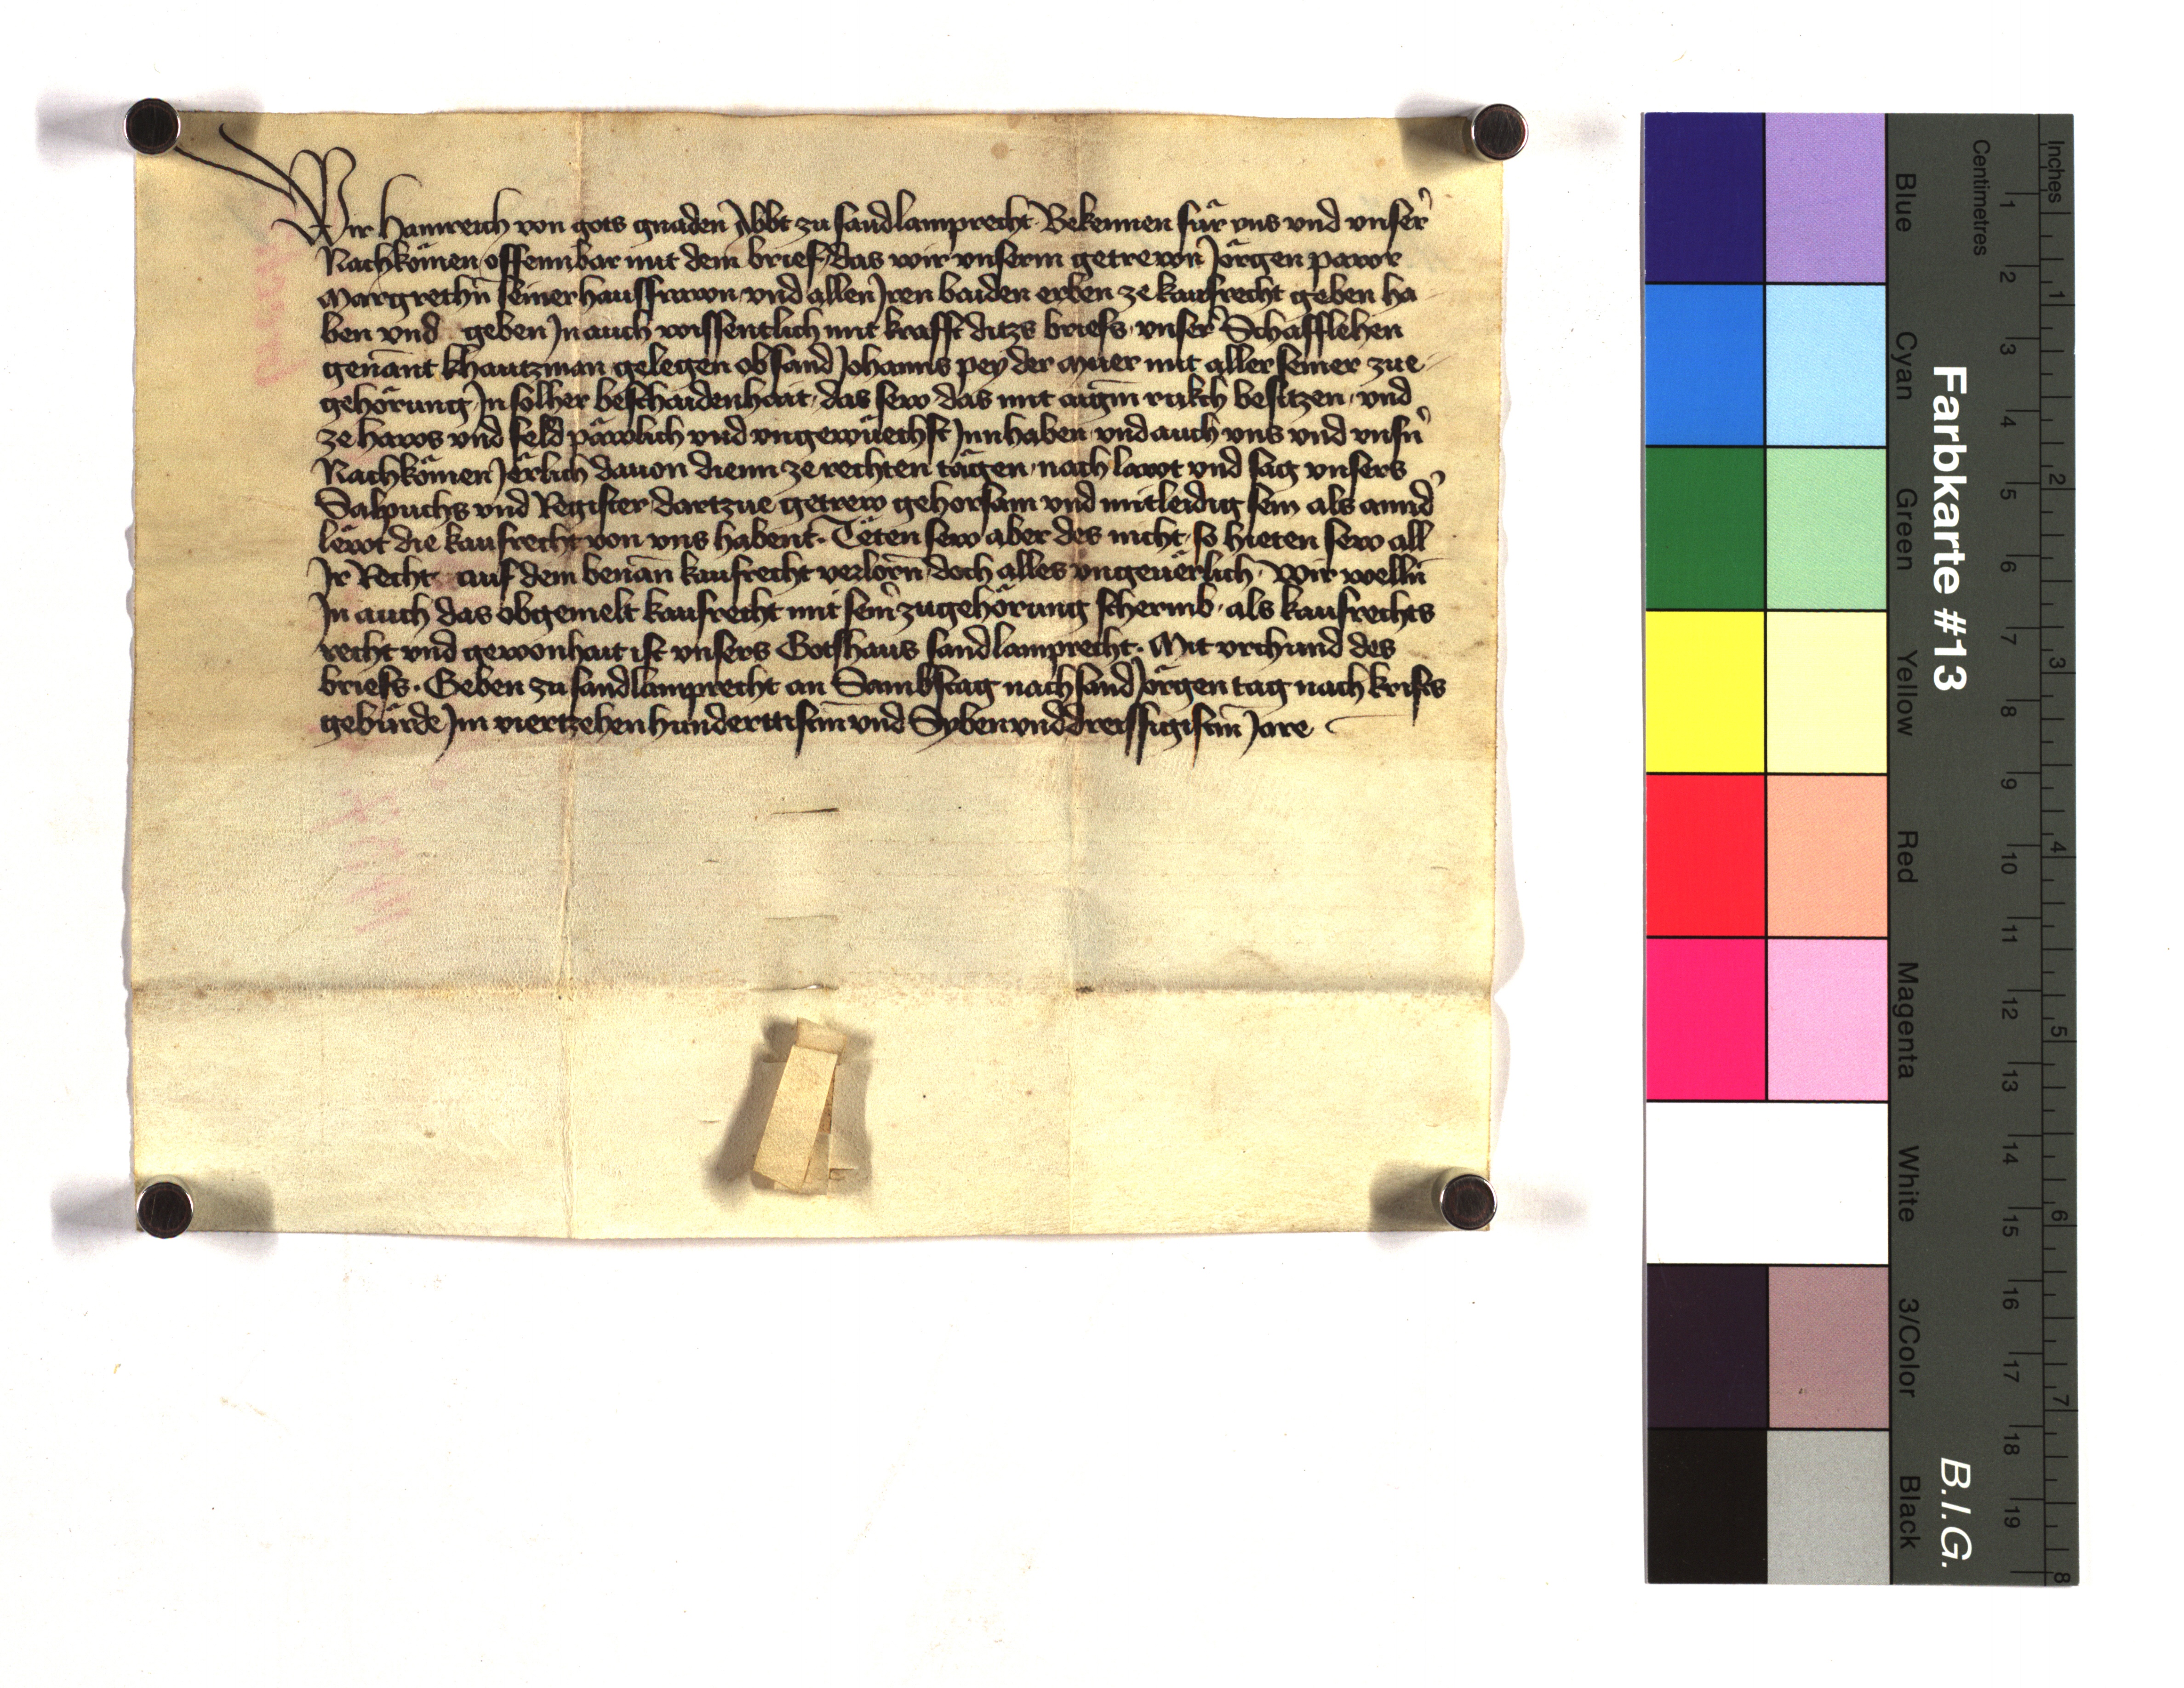 Wir Hainreich von gots gnaden Abbt zu sand lamprecht Bekennen für vns vnd vnser
Nachkömen offennbar mit dem brief das wir vnserm getrewn Jörgen pawr
Margrethn seiner hausfrawn vnd allen Jren baiden erben ze kaufrecht geben ha
ben vnd geben Jn auch wissentlich mit krafft ditzs briefs vnser Schafflehen
genant khautzman gelegen ob sand Johanns pey der Muer mit aller seiner zue
gehörung Jn solher beschaidenhait das sew das mit aigm rukch besitzen vnd
ze haws vnd feld päwlich vnd vngewüechst Jnnhaben vnd auch vns vnd vnsn
Nachkömen Jërlich dauon dienn ze rechten tägen nach lawt vnd sag vnsers
Salpuchs vnd Register dartzue getrew gehorsam vnd mitleidig sein als annd
lëwt die kaufrecht von vns habent Tëten sew aber des nicht so hieten sew all
Jr Recht auf dem benan kaufrecht verlorn doch alles vngeuërlich Wir welln
Jn auch das obgemelt kaufrecht mit sein zugehörung schermb als kaufrechts
recht vnd gewonhait ist vnsers Gotshaus sand lamprecht. Mit vrchund des
briefs. Geben zu sand lamprecht an Sambstag nach sand Jörgen tag nach krists
gebürde Jm viertzehenhunderttistm vnd Sybenvnddreissigistm Jare
Farbkarte #13
B.I.G.
Centimetres
Inches
Blue
Cyan
Green
Yellow
Red
Magenta
White
3/Color
Black
1 2 3 4 5 6 7 8 9 10 11 12 13 14 15 16 17 18 19
1 2 3 4 5 6 7 8